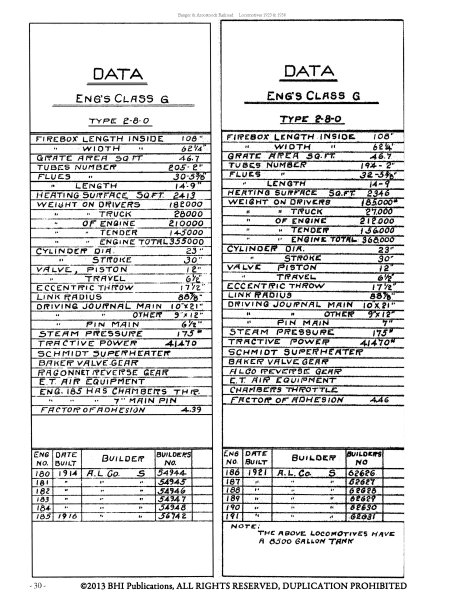 Bangor & Aroostook Railroad Locomotives 1923 to 1938
DATA
ENG'S CLASS G
TYPE 2-8-0
FIREBOX LENGTH INSIDE 108"
" WIDTH " 62¼"
GRATE AREA SQ FT 46.7
TUBES NUMBER 205-2"
FLUES " 30-5⅜"
" LENGTH 14-9"
HEATING SURFACE SQ.FT. 2413
WEIGHT ON DRIVERS 182000
" " TRUCK 28000
" OF ENGINE 210000
" " TENDER 145000
" " ENGINE TOTAL 355000
CYLINDER DIA. 23"
" STROKE 30"
VALVE, PISTON 12"
" TRAVEL 6½"
ECCENTRIC THROW 17½"
LINK RADIUS 88⅞"
DRIVING JOURNAL MAIN 10"X21"
" " OTHER 9"X12"
" PIN MAIN 6½"
STEAM PRESSURE 175#
TRACTIVE POWER 41470
SCHMIDT SUPERHEATER
BAKER VALVE GEAR
RAGONNET REVERSE GEAR
E.T. AIR EQUIPMENT
ENG. 185 HAS CHAMBERS THR.
" " " 7" MAIN PIN
FACTOR OF ADHESION 4.39
ENG NO. DATE BUILT BUILDER BUILDERS NO.
180 1914 A.L. Co. S 54945
181 " " " 54945
182 " " " 54946
183 " " " 54947
184 " " " 54948
185 1916 " " 56742
DATA
ENG'S CLASS G
TYPE 2-8-0
FIREBOX LENGTH INSIDE 108"
" WIDTH " 62¼"
GRATE AREA SQ.FT. 46.7
TUBES NUMBER 194-2"
FLUES " 32-5⅜"
" LENGTH 14-9
HEATING SURFACE SQ.FT 2346
WEIGHT ON DRIVERS 185000#
" " TRUCK 27,000
" OF ENGINE 212000
" " TENDER 156000
" " ENGINE TOTAL 368000
CYLINDER DIA. 23"
" STROKE 30"
VALVE PISTON 12"
" TRAVEL 6½"
ECCENTRIC THROW 17½"
LINK RADIUS 88⅞"
DRIVING JOURNAL MAIN 10"X21"
" " OTHER 9"X12"
" PIN MAIN 7"
STEAM PRESSURE 175#
TRACTIVE POWER 41470#
SCHMIDT SUPERHEATER
BAKER VALVE GEAR
ALCO REVERSE GEAR
E.T. AIR EQUIPMENT
CHAMBERS THROTTLE
FACTOR OF ADHESION 4.46
ENG NO. DATE BUILT BUILDER BUILDERS NO.
186 1921 A.L. Co. S 62626
187 " " " 62627
188 " " " 62628
189 " " " 62629
190 " " " 62630
191 " " " 62631
NOTE:
THE ABOVE LOCOMOTIVES HAVE
A 8500 GALLON TANK
- 30 -
©2013 BHI Publications, ALL RIGHTS RESERVED, DUPLICATION PROHIBITED